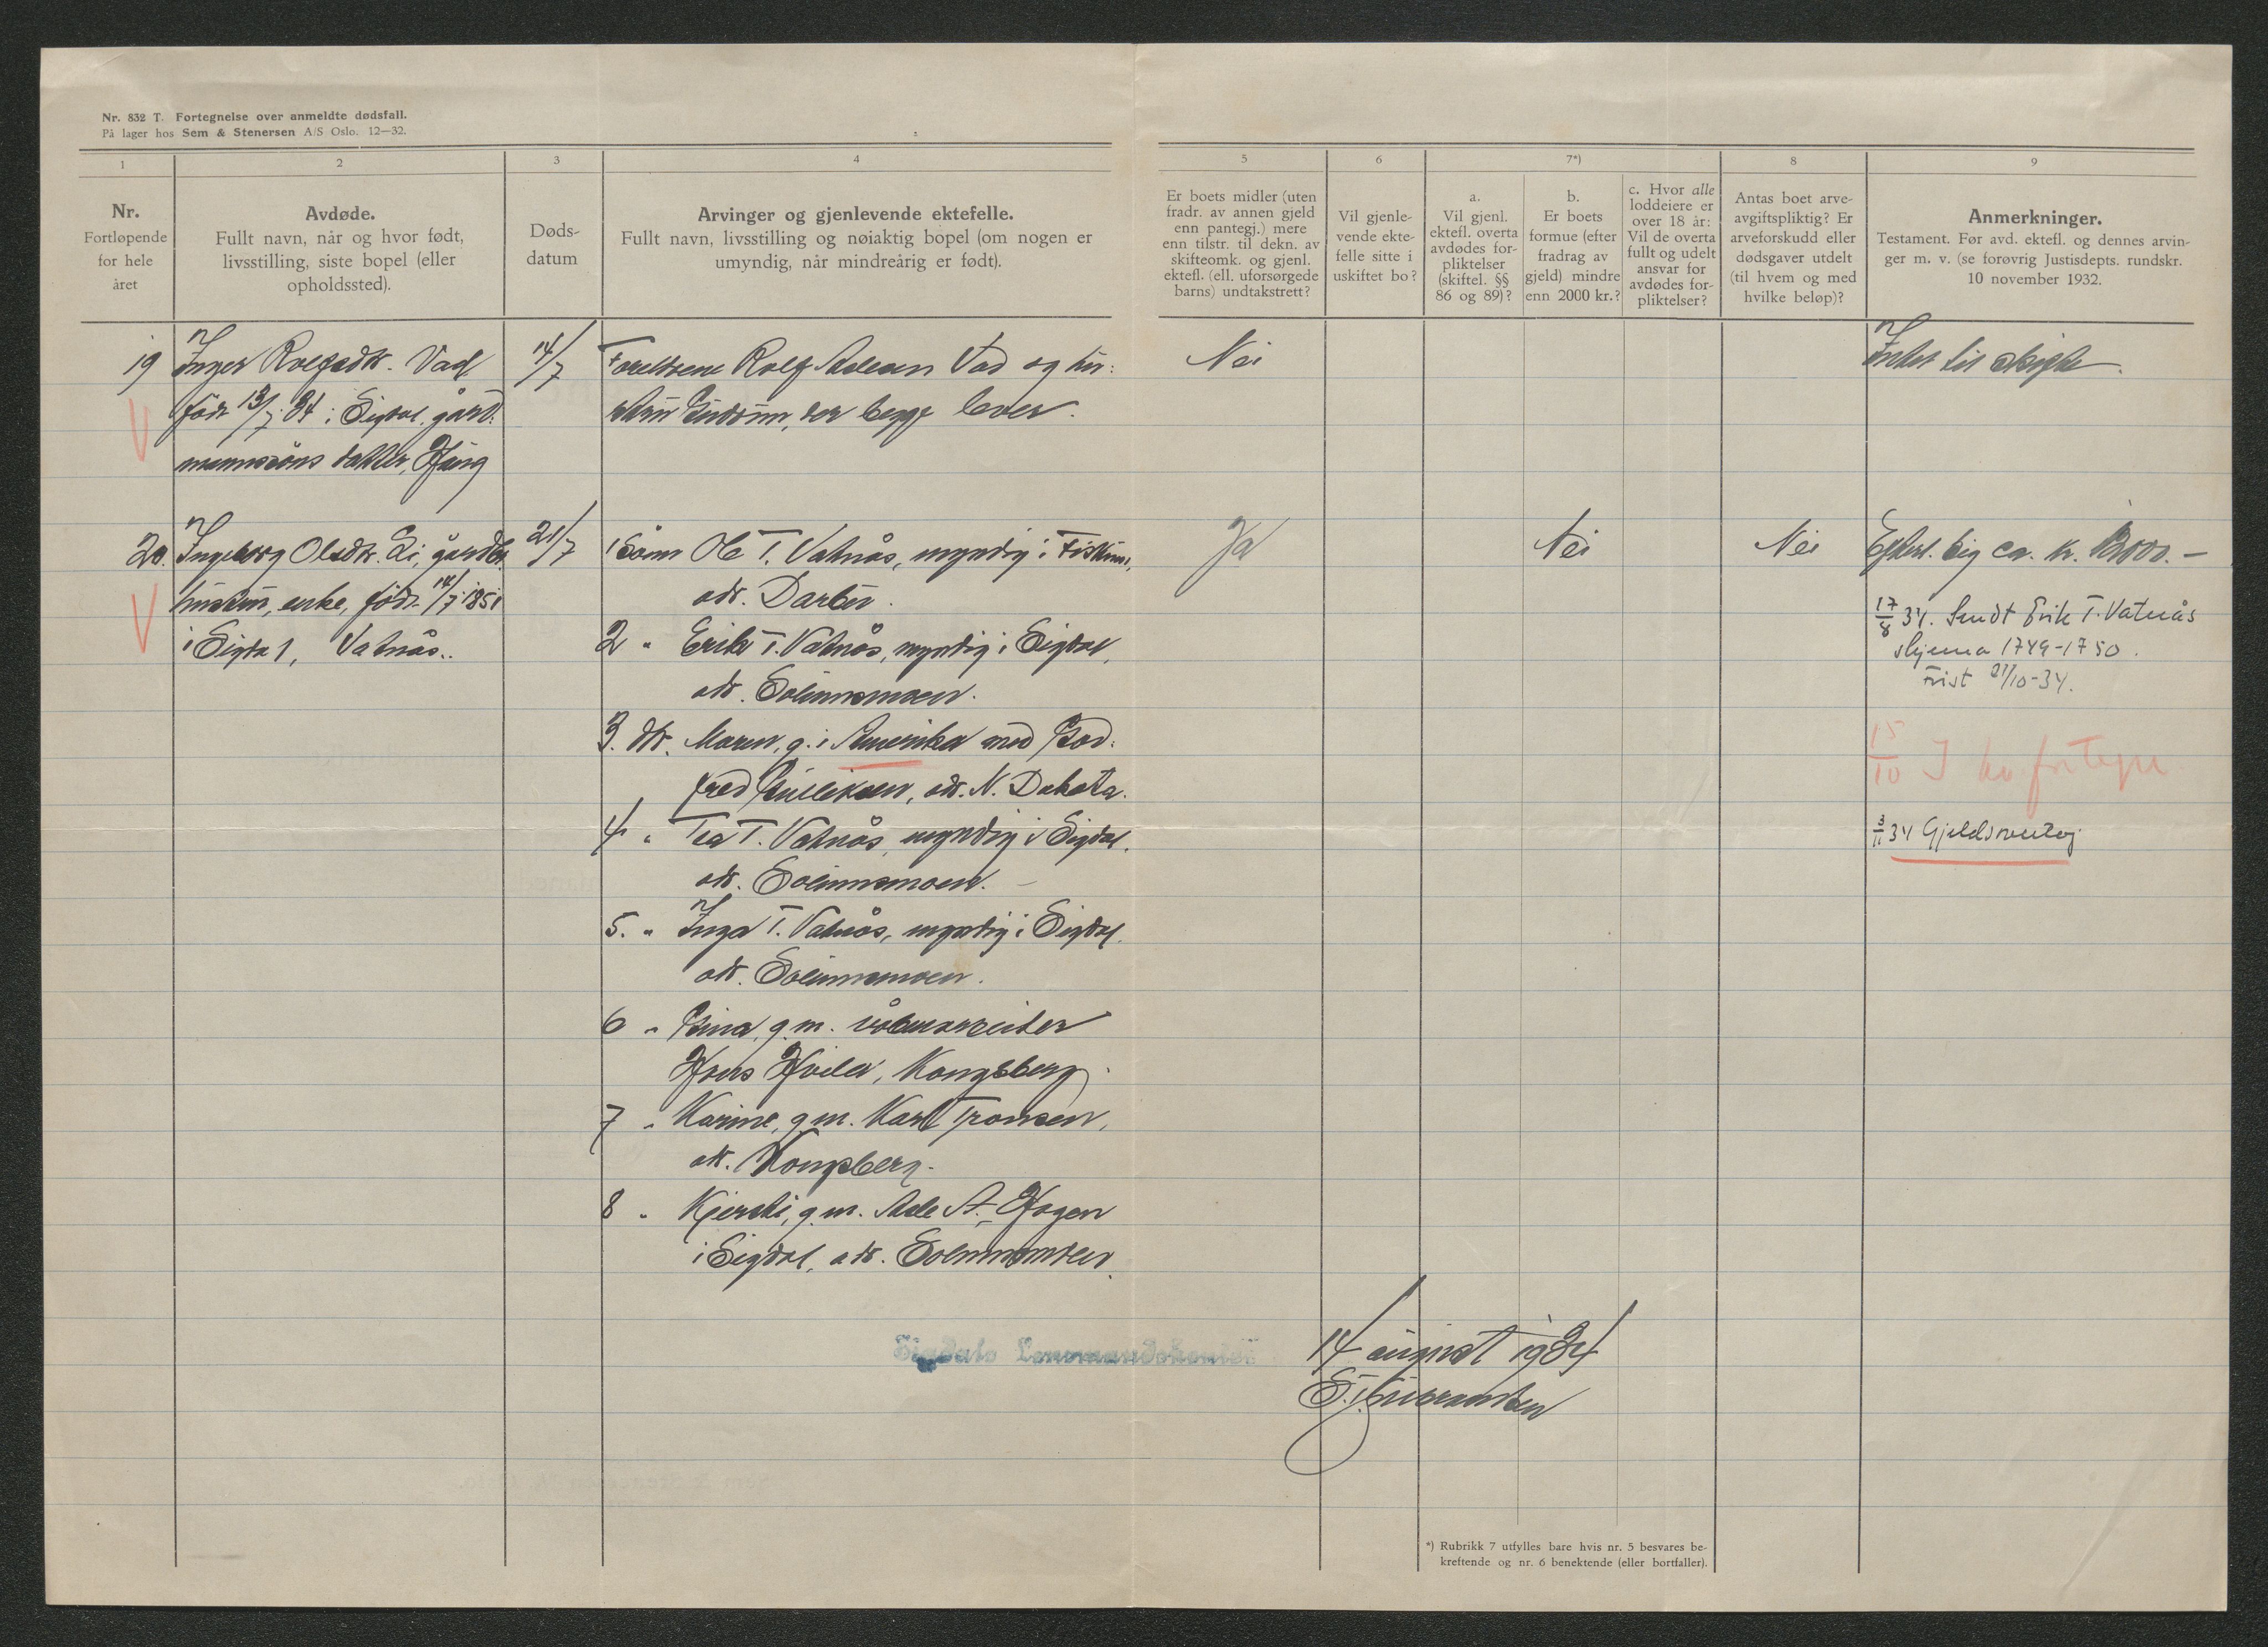 Nr. 832 T. Fortegnelse over anmeldte dødsfall.
På lager hos Sem & Stenersen A/S Oslo. 12—32.
1
2
3
4
5
6
7*)
8
9
Nr.
Fortløpende
for hele
året
Avdøde.
Fullt navn, når og hvor født,
livsstilling, siste bopel (eller
opholdssted).
Døds-
datum
Arvinger og gjenlevende ektefelle.
Fullt navn, livsstilling og nøiaktig bopel (om nogen er
umyndig, når mindreårig er født).
Er boets midler (uten
fradr. av annen gjeld
enn pantegj.) mere
enn tilstr. til dekn. av
skifteomk. og gjenl.
ektefl. (ell. uforsørgede
barns) undtakstrett?
Vil gjenle-
vende ekte-
felle sitte i
uskiftet bo?
a.
Vil gjenl.
ektefl. overta
avdødes for-
pliktelser
(skiftel. §§
86 og 89)?
b.
Er boets
formue (efter
fradrag av
gjeld) mindre
enn 2000 kr.?
c. Hvor alle
loddeiere er
over 18 år:
Vil de overta
fullt og udelt
ansvar for
avdødes for-
pliktelser?
Antas boet arve-
avgiftspliktig? Er
arveforskudd eller
dødsgaver utdelt
(til hvem og med
hvilke beløp)?
Anmerkninger.
Testament. Før avd. ektefl. og dennes arvin-
ger m. v. (se forøvrig Justisdepts. rundskr.
10 november 1932.
19 Inger Rolfsdtr. Vad
født 13/7 34 i Sigdal, gård-
mannsöns datter,
14/7
Foreldrene Rolf Aslesen Vad og hu-
stru Gudrun, der begge lever.
Nei
Intet til skifte.
20. Ingeborg Olsdtr. Li, gårdbr.
hustru, enke, født 14/7 1851
i Sigdal, Vatnås.
21/7
1 Sönn Ole T. Vatnås, myndig i Fiskum,
adr. Darbu.
2 " Erik T. Vatnås, myndig i Sigdal,
adr. Solumsmoen.
3. dtr. Maren, g. i Amerika med God-
fred Gulliksen, adr. N. Dakota.
4 " Tea T. Vatnås, myndig i Sigdal.
adr. Solumsmoen.
5. " Inga T. Vatnås, myndig i Sigdal.
adr. Solumsmoen.
6 " Gina, g. m. våbenarbeider
Hans, Kongsberg.
7 " Karine, g. m. Karl Tronsen,
adr. Kongsberg.
8 " Kjersti, g. m. Asle A. Hagen
i Sigdal, adr. Solumsmoen.
Ja
Nei
Nei
ca. kr.
17/8 34. Sendt Erik T. Vatnås
skjema 1749-1750.
Frist 21/10-34.
15/10 I
3/11 34 Gjeldsovertag
Sigdals Lensmandskontor
14 august 1934
*) Rubrikk 7 utfylles bare hvis nr. 5 besvares be-
kreftende og nr. 6 benektende (eller bortfaller).